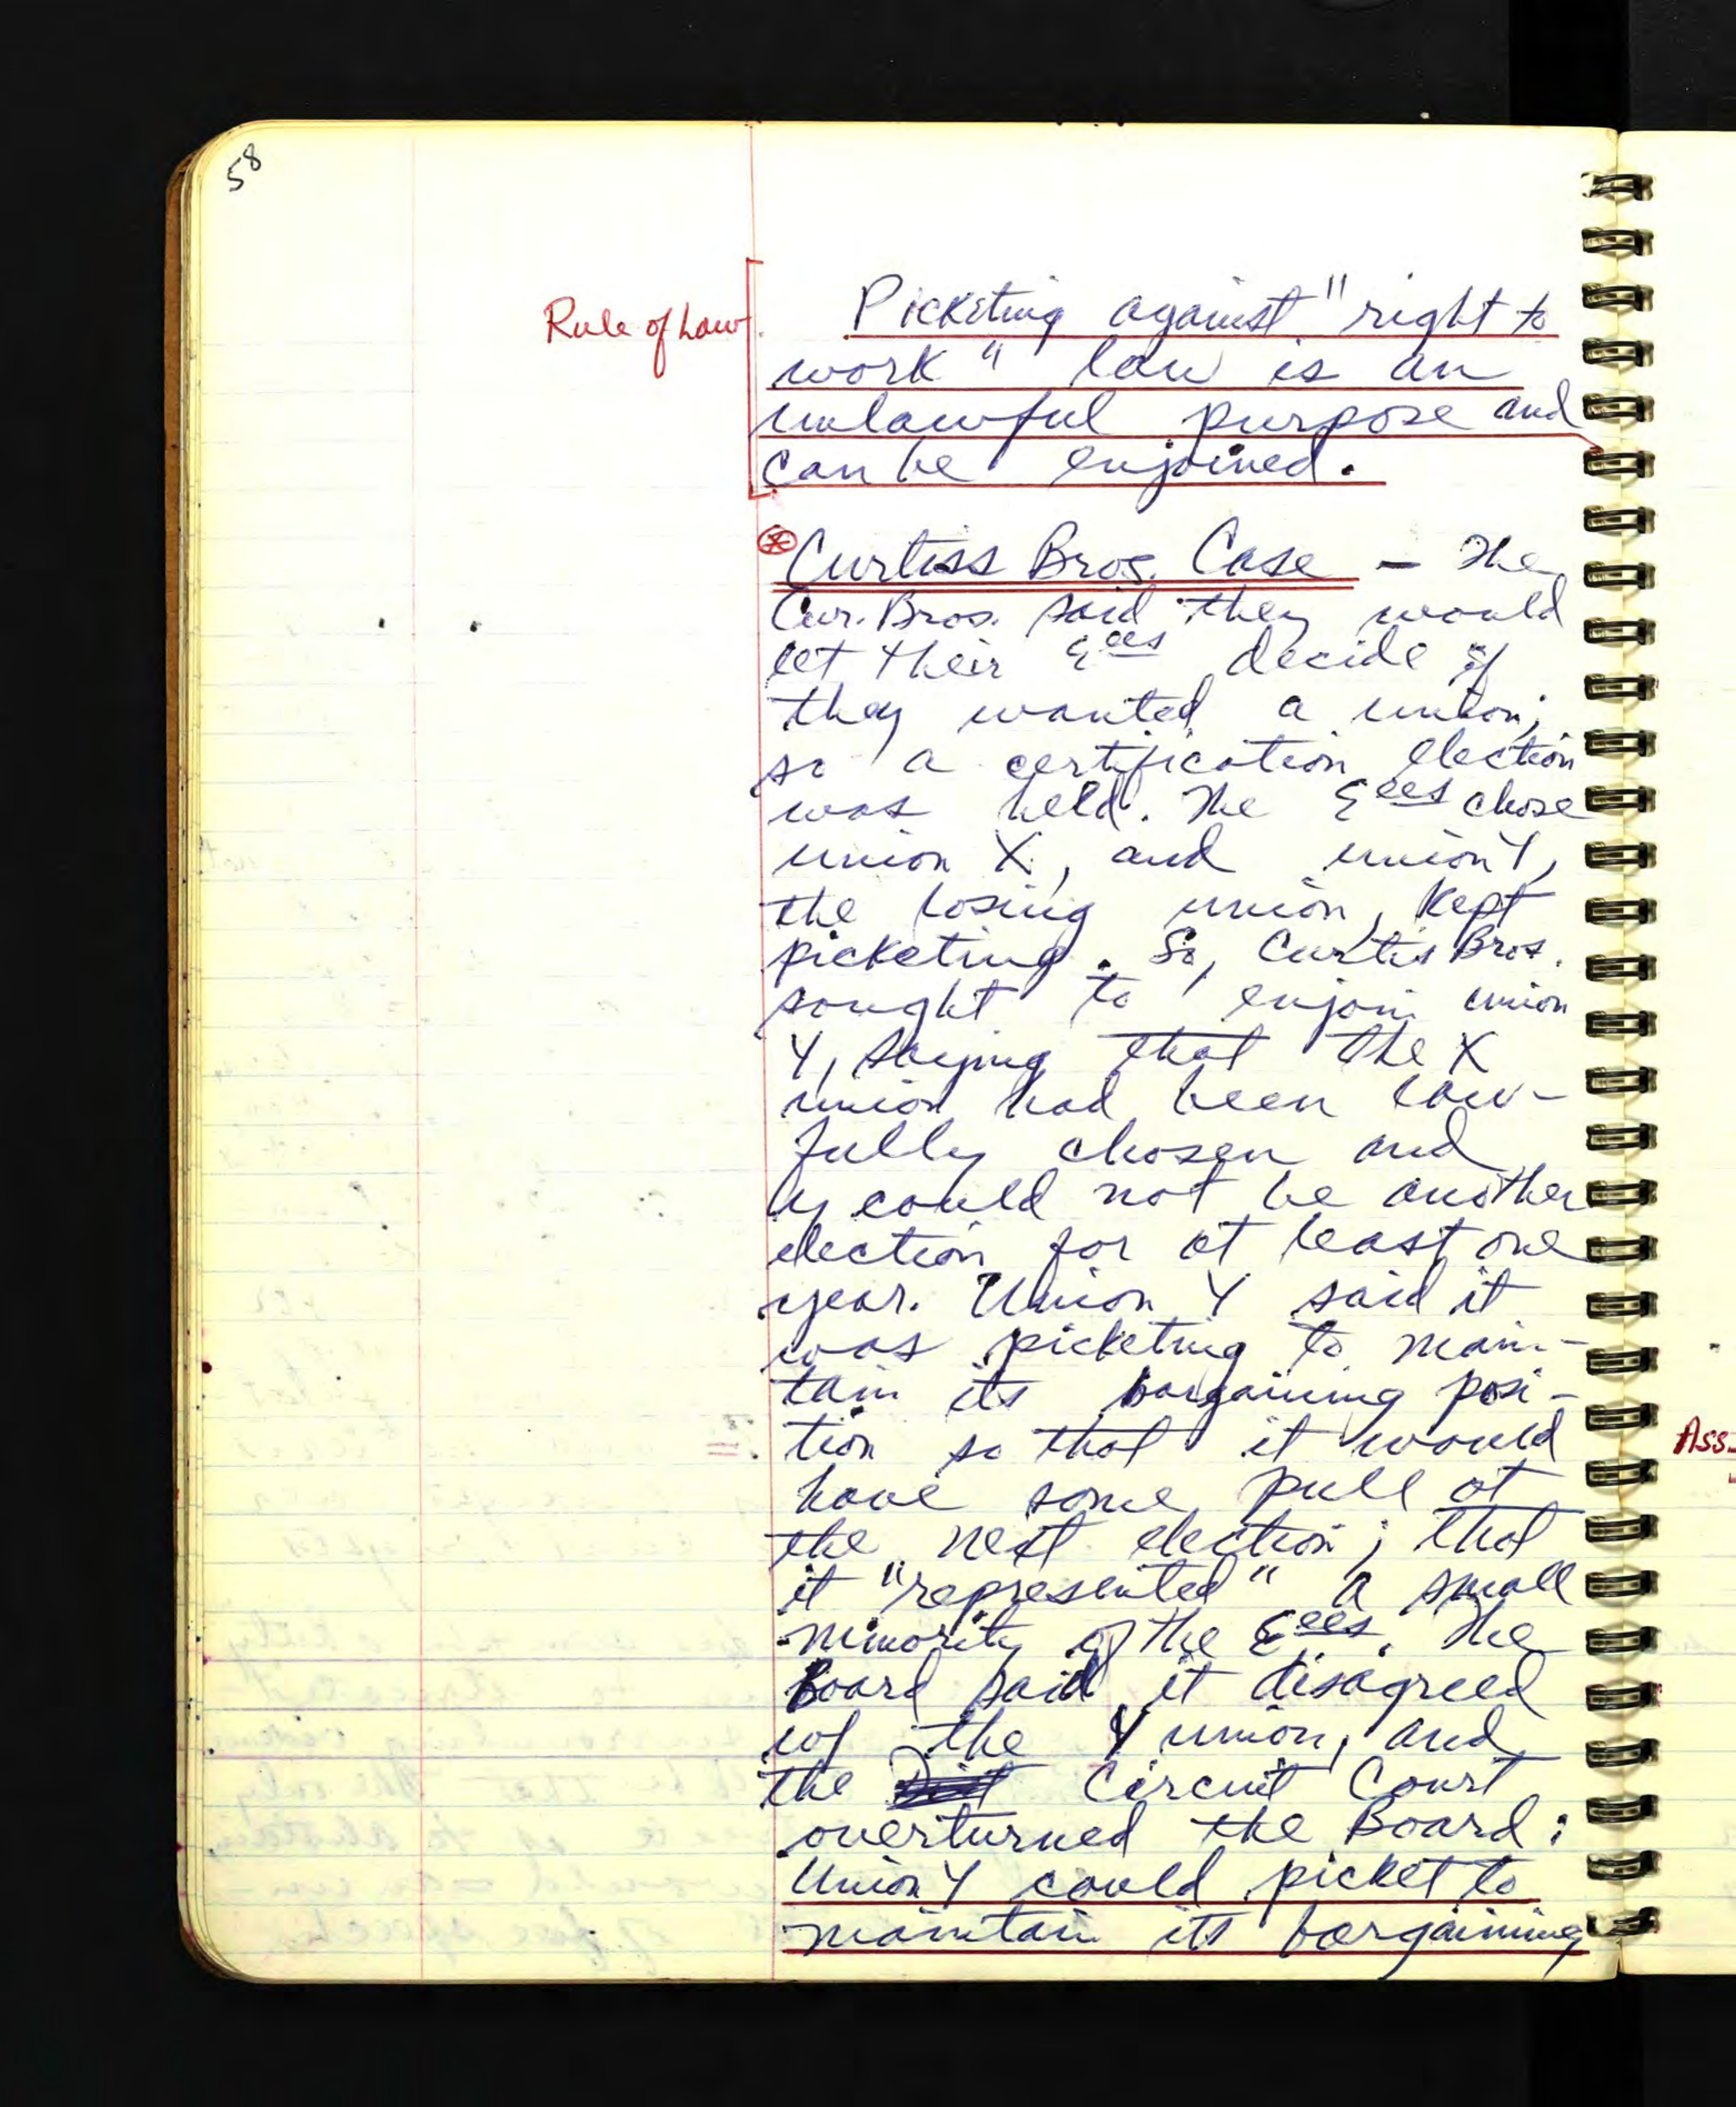 58
Rule of Law
Picketing against "right to
work" law is an
unlawful purpose and
can be enjoined.
* Curtiss Bros. Case – The
Cur. Bros. said they would
let their Eees decide if
they wanted a union;
so a certification election
was held. The Eees chose
union X, and union Y,
the losing union, kept
picketing. So, Curtis Bros.
sought to enjoin union
Y, saying that the X
union had been law-
fully chosen and
y could not be another
election for at least one
year. Union Y said it
was picketing to main-
tain its bargaining posi-
tion so that it would
have some pull at
the next election; that
it "represented" a small
minority of the Eees. The
Board said it disagreed
w/ the Y union, and
the Circuit Court
overturned the Board:
Union Y could picket to
maintain its bargaining
Ass-